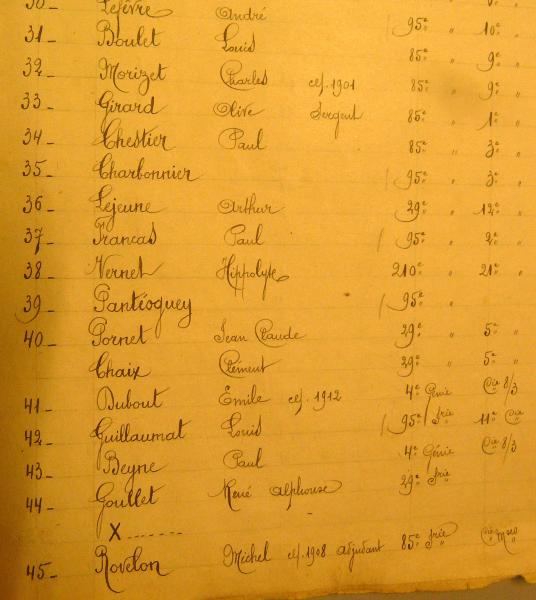 30_ Lefèvre André 95e " 10e "
31_ Boulet Louis 85e " 9e "
32_ Morizet Charles cl. 1901 85e " 9e "
33_ Girard Olive Sergent 85e " 1e "
34_ Chestier Paul 85e " 3e "
35_ Charbonnier 95e " 3e "
36_ Lejeune Arthur 29e " 12e "
37_ Francas Paul 95e " 2e "
38_ Vernet Hippolyte 210e " 21e "
39_ Pantéoquey 95e "
40_ Pornet Jean Claude 29e " 5e "
Chaix Clément 29e " 5e "
41_ Dubout Emile cl. 1912 4e Génie Cie 8/3
42_ Guillaumat Louis 95e frie 11e Cie
43_ Beyne Paul 4e Génie Cie 8/3
44_ Goullet René Alphonse 29e frie
X ......
45_ Rovelon Michel cl. 1908 adjudant 85e frie Cie